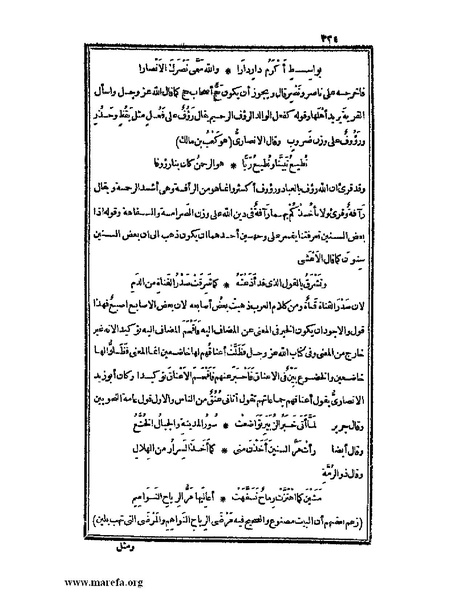 ٣٣٤
بواسط أكرم دار دارا * والله سمى نصرك الأنصارا
فاخرجه على ناصر ونصر قال ويجوز أن يكون حج أصحاب حج كما قال الله عز وجل واسأل
القرية يريد أهلها وقوله كفعل الوالد الرؤف الرحيم يقال رؤف على فعل مثل يقظ وحذر
ورؤوف على وزن ضروب وقال الأنصاري (هو كعب بن مالك)
نطيع نبينا ونطيع ربا * هو الرحمن كان بنا رؤوفا
وقد قرئ ان الله رؤف بالعباد ورؤوف أكثر وانما هو من الرأفة وهي أشد الرحمة ويقال
رآفة وقرئ ولا تأخذكم بهما رآفة في دين الله على وزن الصرامة والسفاهة وقوله اذا
بعض السنين تعرقتنا يفسر على وجهين أحدهما ان يكون ذهب الى ان بعض السنين
سنون كما قال الأعشى
وتشرق بالقول الذي قد أذعته * كما شرقت صدر القناة من الدم
لان صدر القناة قناة ومن كلام العرب ذهبت بعض أصابعه لان بعض الاصابع اصبع فهذا
قول والاجود ان يكون الخبر في المعنى عن المضاف اليه واقحم المضاف اليه توكيدا لانه غير
خارج من المعنى وفي كتاب الله عز وجل فظلت أعناقهم لها خاضعين انما المعنى فظلوا لها
خاضعين والخضوع بين في الاعناق فأخبر عنهم فأقحم الاعناق توكيدا وكان أبو زيد
الانصاري يقول أعناقهم جماعاتهم تقول أتاني عنق من الناس والاول قول عامة النحويين
وقال جرير لما أتى خبر الزبير تواضعت * سور المدينة والجبال الخشع
وقال أيضا رأت مر السنين أخذن مني * كما أخذ السرار من الهلال
وقال ذو الرمة
مشين كما اهتزت رماح تسفهت * أعاليها مر الرياح النواسم
(زعم بعضهم أن البيت مصنوع والصحيح فيه مرضى الرياح النواسم والمرضى التي تهب بلين)
ومثل
www.marefa.org